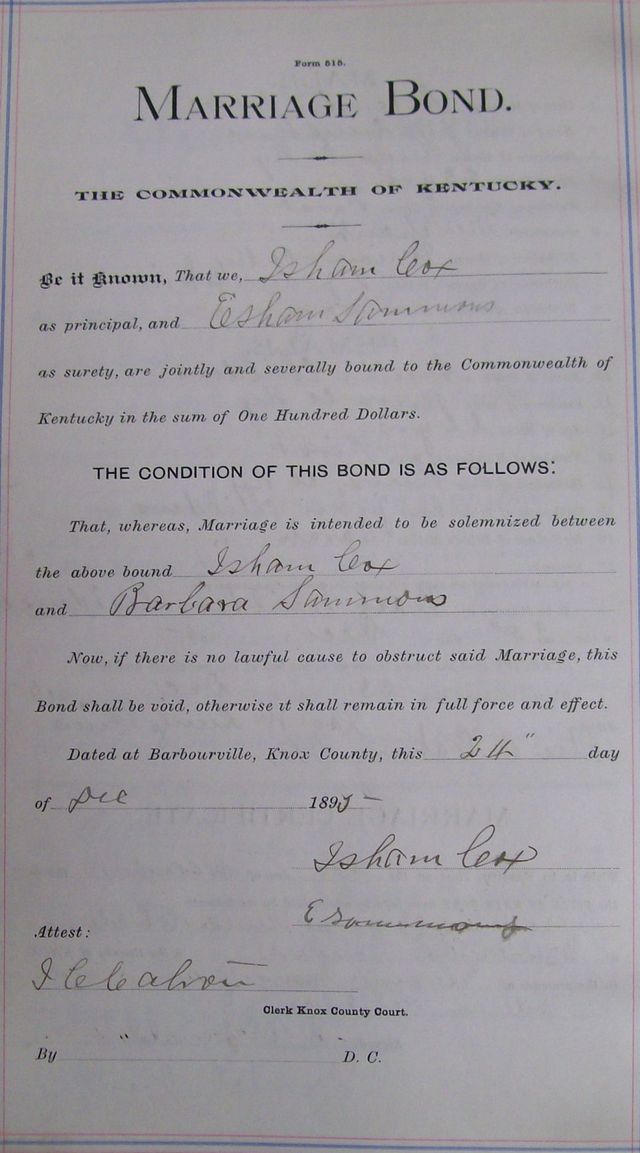 Form 515.
MARRIAGE BOND.
THE COMMONWEALTH OF KENTUCKY.
Be it Known, That we, Isham Cox
as principal, and Esham Sammons
as surety, are jointly and severally bound to the Commonwealth of
Kentucky in the sum of One Hundred Dollars.
THE CONDITION OF THIS BOND IS AS FOLLOWS:
That, whereas, Marriage is intended to be solemnized between
the above bound Isham Cox
and Barbara Sammons
Now, if there is no lawful cause to obstruct said Marriage, this
Bond shall be void, otherwise it shall remain in full force and effect.
Dated at Barbourville, Knox County, this 24" day
of Dec 1895-
Isham Cox
E Sammons
Attest:
Clerk Knox County Court.
By " D. C.